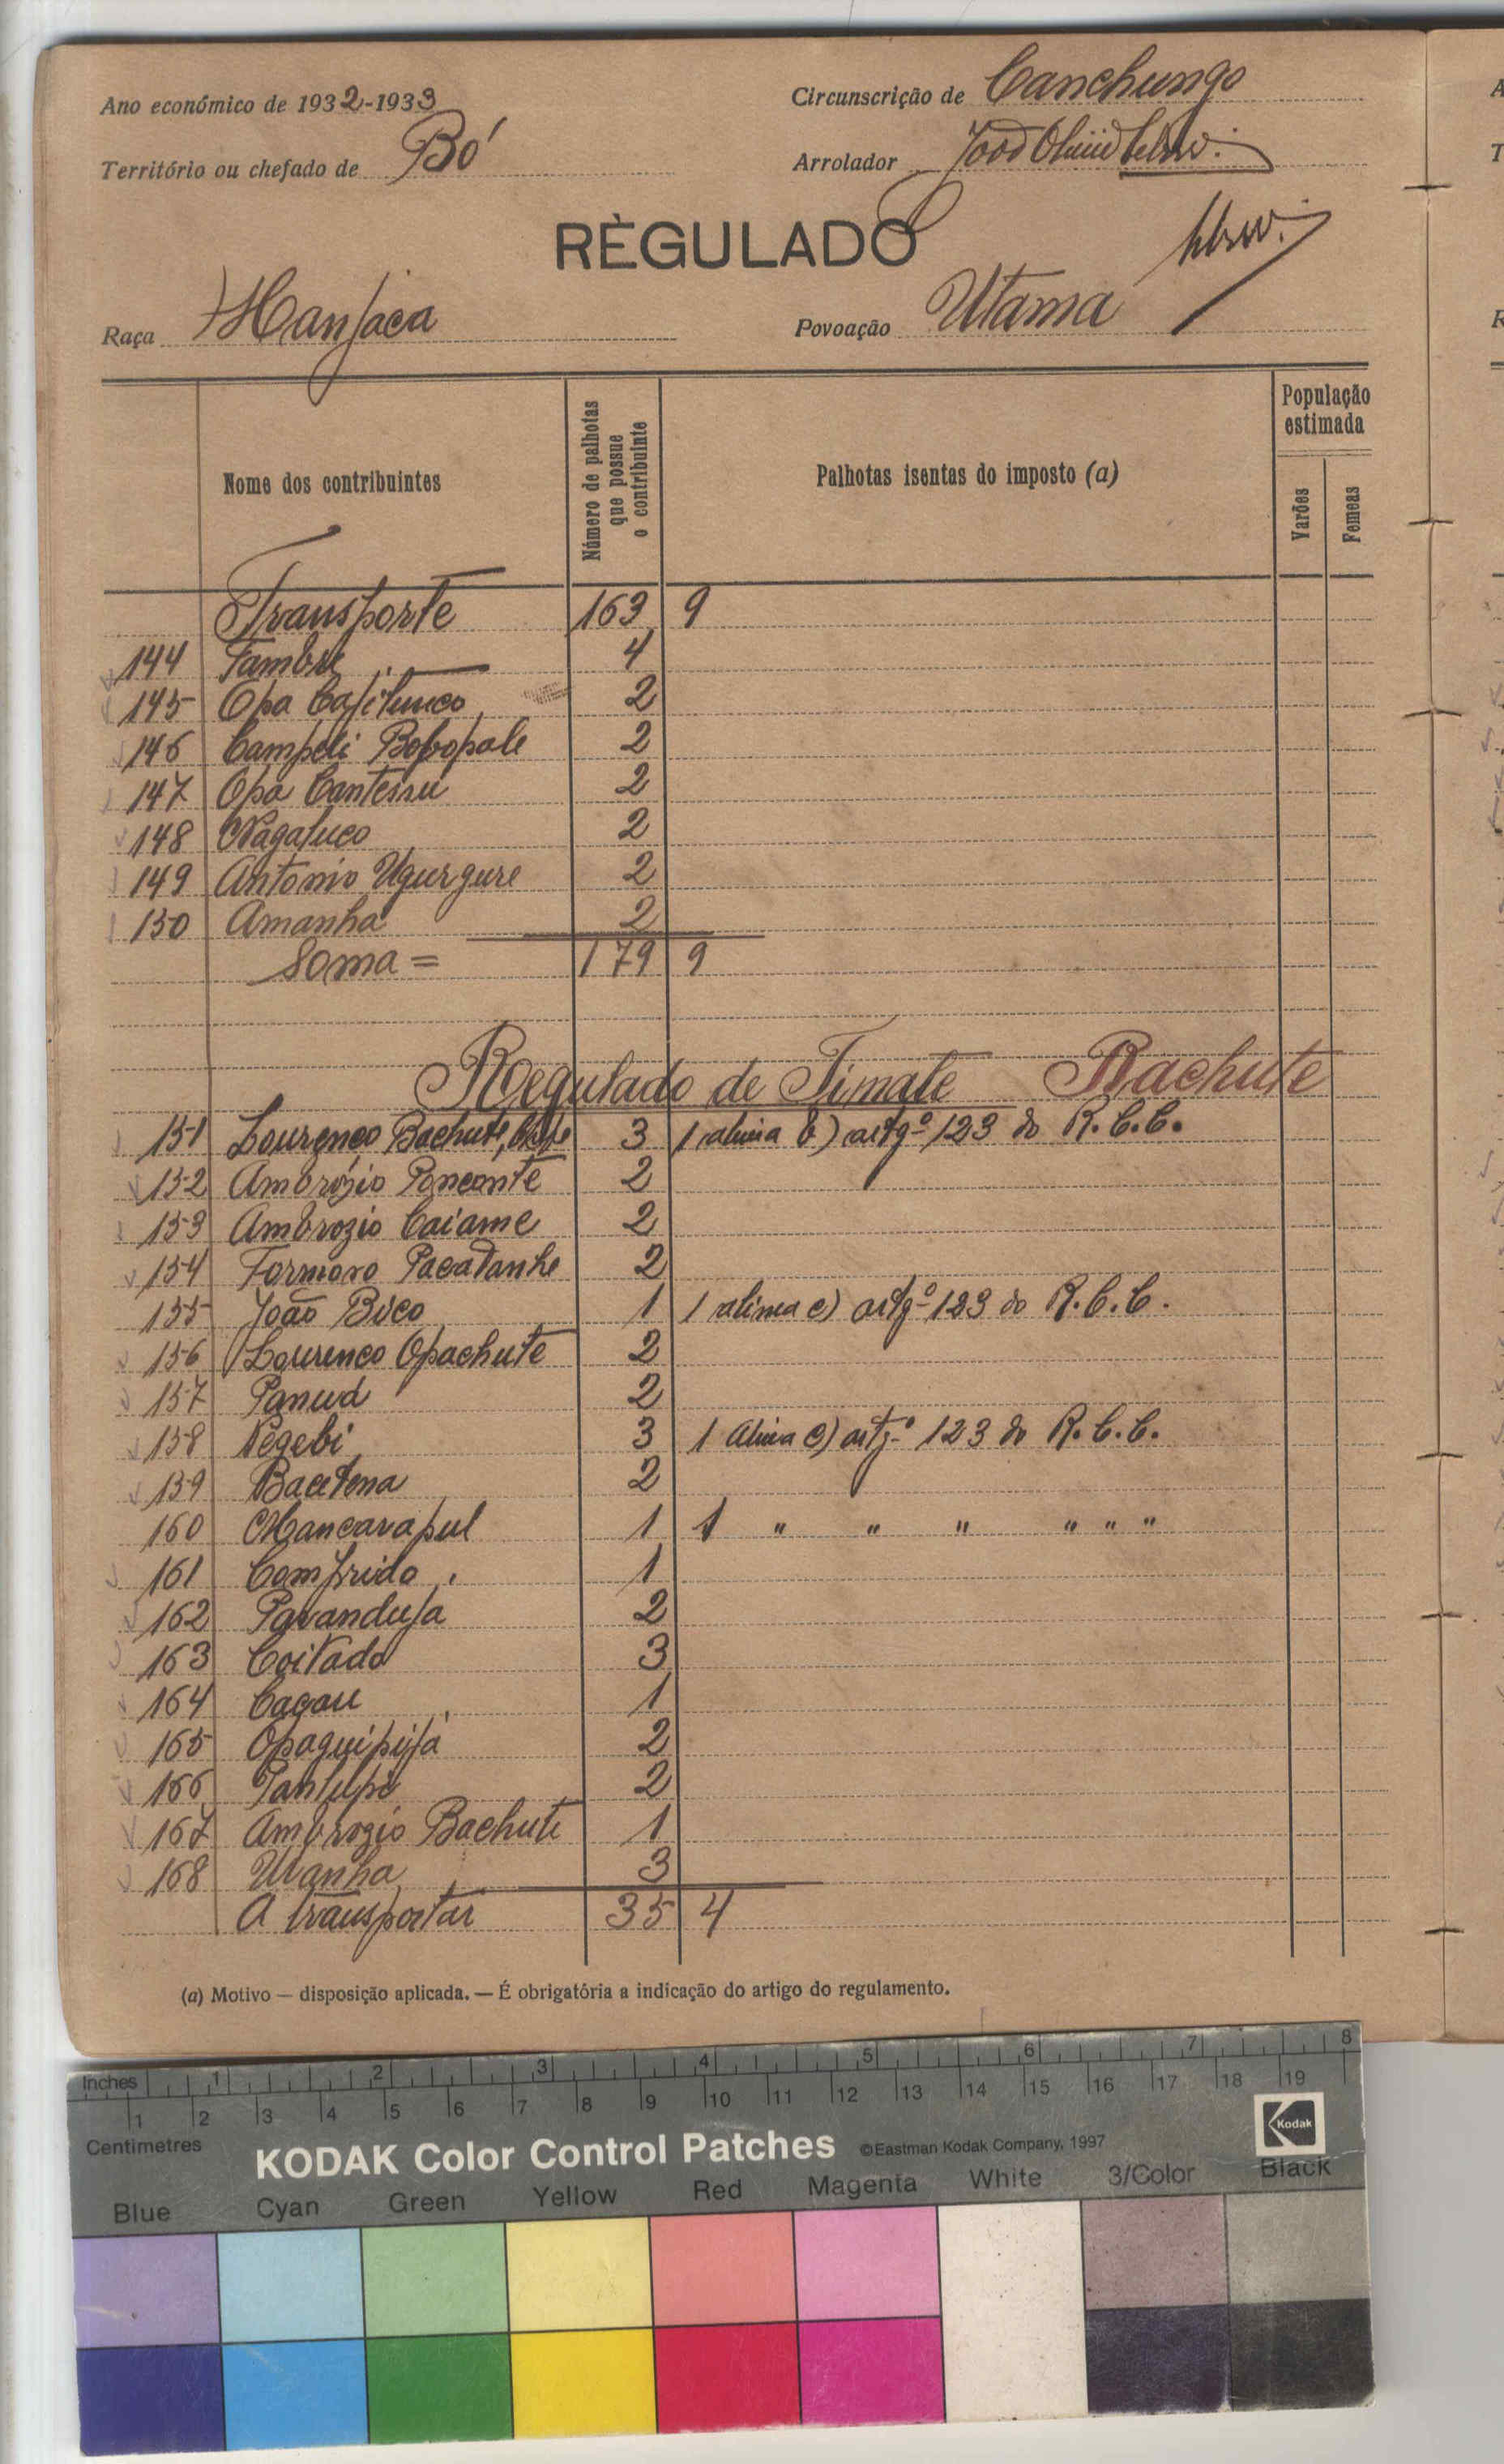 Ano económico de 1932-1933
Circunscrição de Canchungo
Território ou chefado de Bó
Arrolador João
RÈGULADO
Raça Manjaca
Povoação Utama
Nome dos contribuintes
Número de palhotas que possue o contribuinte
Palhotas isentas do imposto (a)
População estimada
Varões
Femeas
Transporte 163 9
144 Tambu 4
145 Opa 2
146 Campeli Bobopale 2
147 Opa Cantessu 2
148 2
149 Antonio Ugurgure 2
150 Amanha 2
Soma = 179 9
Regulado de Timate Bachute
151 Lourenço Bachute, 3 1 alinea b) artgº 123 do R.C.C.
152 Ambrózio Ponconte 2
153 Ambrozio Caiame 2
154 Formoso Pacatanhe 2
155 João Bico 1 1 alinea c) artgº 123 do R.C.C.
156 Lourenco Opachute 2
157 Panua 2
158 Negebi 3 1 Alinea c) artgº 123 do R.C.C.
159 Bacetena 2
160 Mancarapul 1 1 " " " " " "
161 Comprido 1
162 Pavanduja 2
163 Coitado 3
164 Cagau 1
165 Opaquipija 2
166 2
167 Ambrozio Bachute 1
168 Utanha 3
A transportar 35 4
(a) Motivo — disposição aplicada. — É obrigatória a indicação do artigo do regulamento.
Inches 1 2 3 4 5 6 7 8
1 2 3 4 5 6 7 8 9 10 11 12 13 14 15 16 17 18 19
Centimetres
KODAK Color Control Patches ©Eastman Kodak Company, 1997 Kodak
Blue Cyan Green Yellow Red Magenta White 3/Color Black